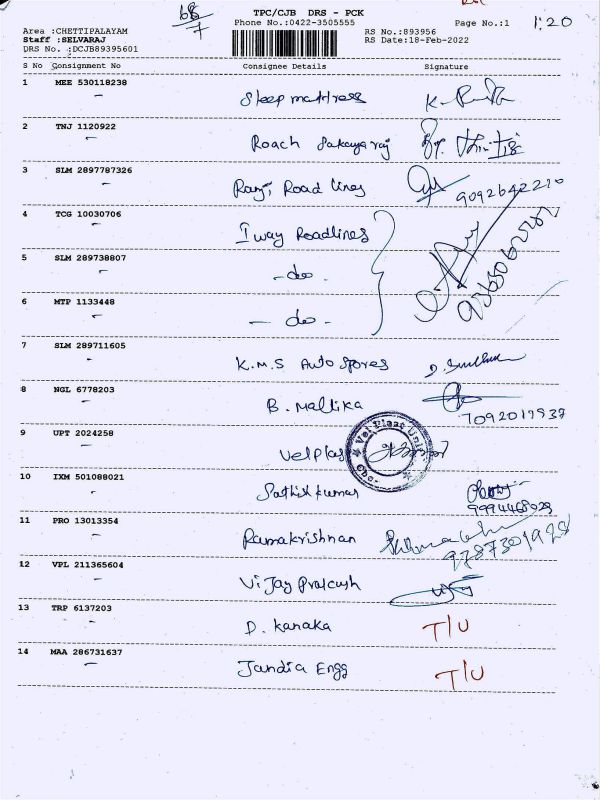 TPC/CJB DRS - PCK
68/7
Phone No.:0422-3505555 Page No.:1 1:20
Area :CHETTIPALAYAM RS No.:893956
Staff :SELVARAJ RS Date:18-Feb-2022
DRS No. :DCJB89395601
S No Consignment No Consignee Details Signature
1 MEE 530118238 Sleep mattress
2 TNJ 1120922 Roach Sakayaraj
3 SLM 2897787326 Ranji Road lines 9092642210
4 TCG 10030706 I way Roadlines
5 SLM 289738807 - do -
6 MTP 1133448 - do -
7 SLM 289711605 K.M.S Auto Spores
8 NGL 6778203 B. Mallika 7092019937
9 UPT 2024258 Velplas
10 IXM 501088021 Sathik kumar
11 PRO 13013354 Ramakrishnan 9787301928
12 VPL 211365604 Vijay Prakash
13 TRP 6137203 D. Kanaka T/U
14 MAA 286731637 Jandia Engg T/U